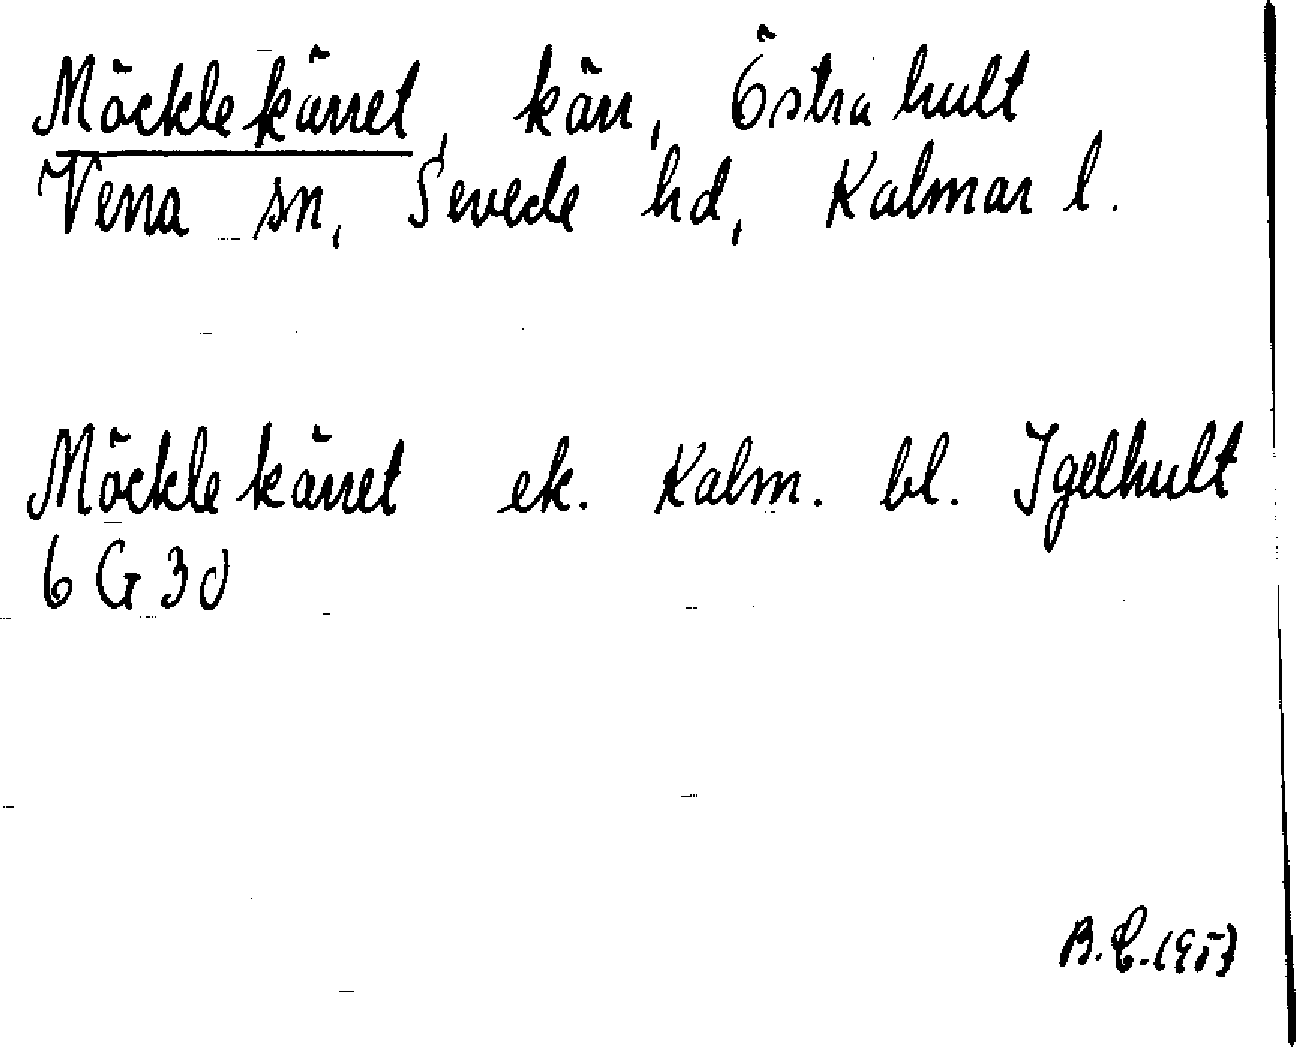 Möcklekärret, kärr, Östrahult
Vena sn, Sevede hd, Kalmar l.
Möcklekärret ek. Kalm. bl. Igelhult
6 G 3 d
B.E. 1957